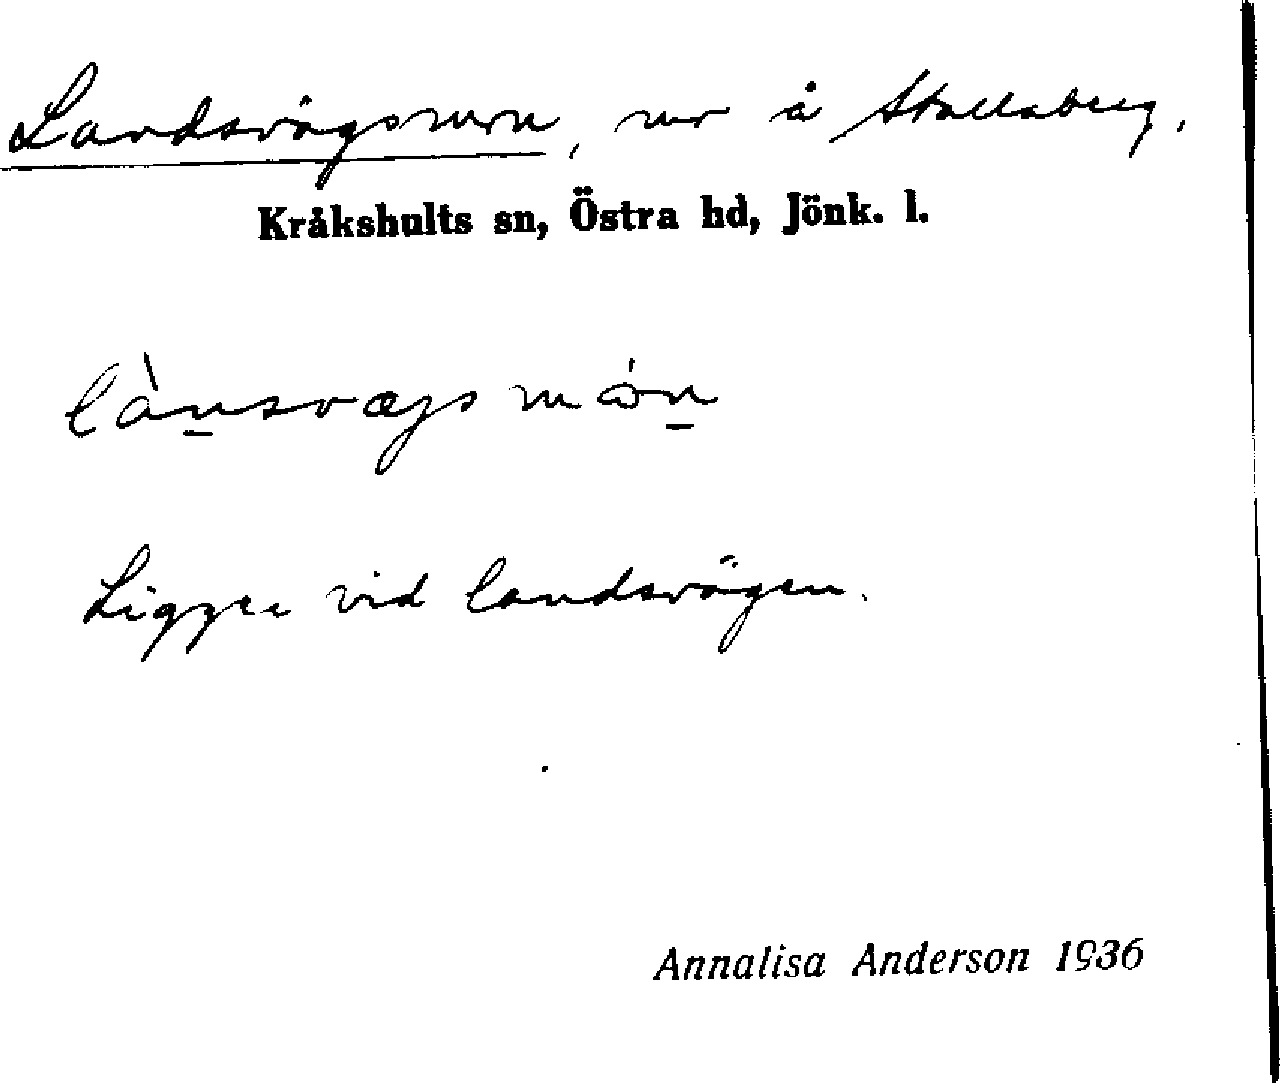 Landsvägsmon, mo å Skallaberg.
Kråkshults sn, Östra hd, Jönk. l.
Ligger vid landsvägen.
Annalisa Anderson 1936